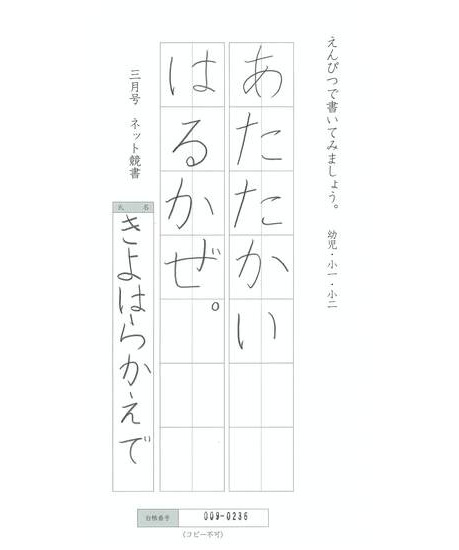 えんぴつで書いてみましょう。 幼児・小一・小二
あたたかい
はるかぜ。
三月号 ネット競書
氏名
きよはらかえで
台帳番号 009-0236
(コピー不可)